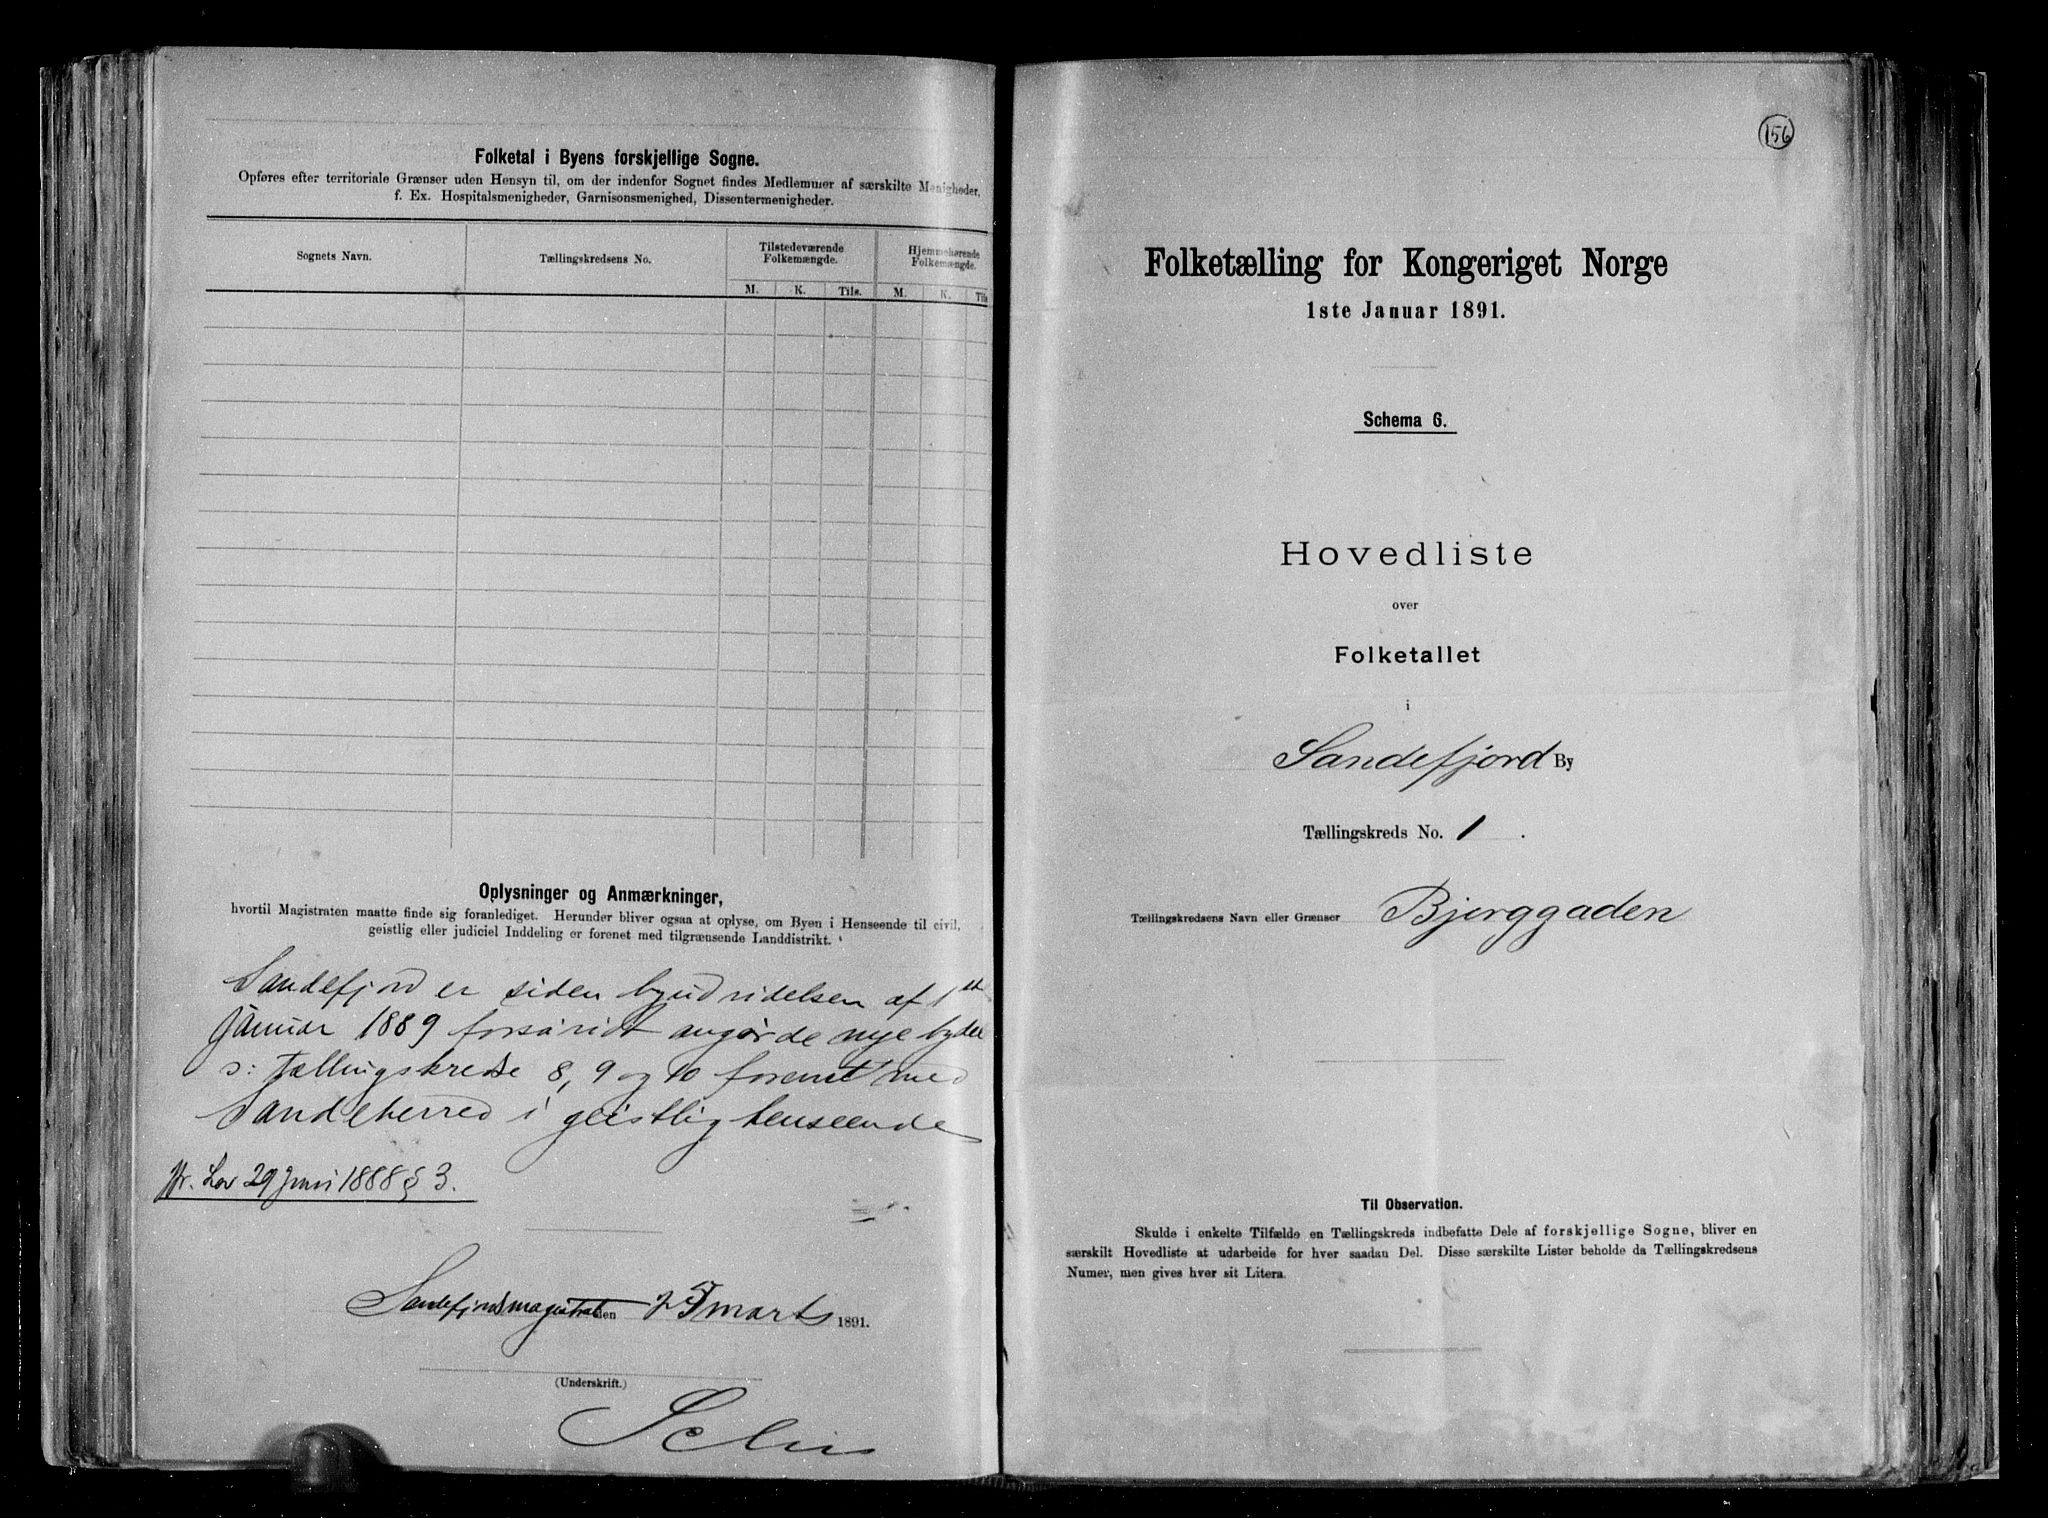 Folketal i Byens forskjellige Sogne.
Opføres efter territoriale Grænser uden Hensyn til, om der indenfor Sognet findes Medlemmer af særskilte Menigheder,
f. Ex. Hospitalsmenigheder, Garnisonsmenighed, Dissentermenigheder.
Sognets Navn.
Tællingskredsens No.
Tilstedeværende Folkemængde.
Hjemmehørende Folkemængde.
M. K. Tils. M. K. Tils
Oplysninger og Anmærkninger,
hvortil Magistraten maatte finde sig foranlediget. Herunder bliver ogsaa at oplyse, om Byen i Henseende til civil,
geistlig eller judiciel Inddeling er forenet med tilgrænsende Landdistrikt.
Sandefjord er siden byudvidelsen af 1st
Januar 1889 forsåvidt angår de nye bydele
ɔ: Tællingskredse 8, 9 og 10 forenet med
Sandeherred i geistlig henseende
jfr. Lov 29 Juni 1888 § 3.
Sandefjords magistrat den 25 marts 1891.
(Underskrift.)
156
Folketælling for Kongeriget Norge
1ste Januar 1891.
Schema 6.
Hovedliste
over
Folketallet
i
Sandefjord By
Tællingskreds No. 1.
Tællingskredsens Navn eller Grænser Bjerggaden
Til Observation.
Skulde i enkelte Tilfælde en Tællingskreds indbefatte Dele af forskjellige Sogne, bliver en
særskilt Hovedliste at udarbeide for hver saadan Del. Disse særskilte Lister beholde da Tællingskredsens
Numer, men gives hver sit Litera.